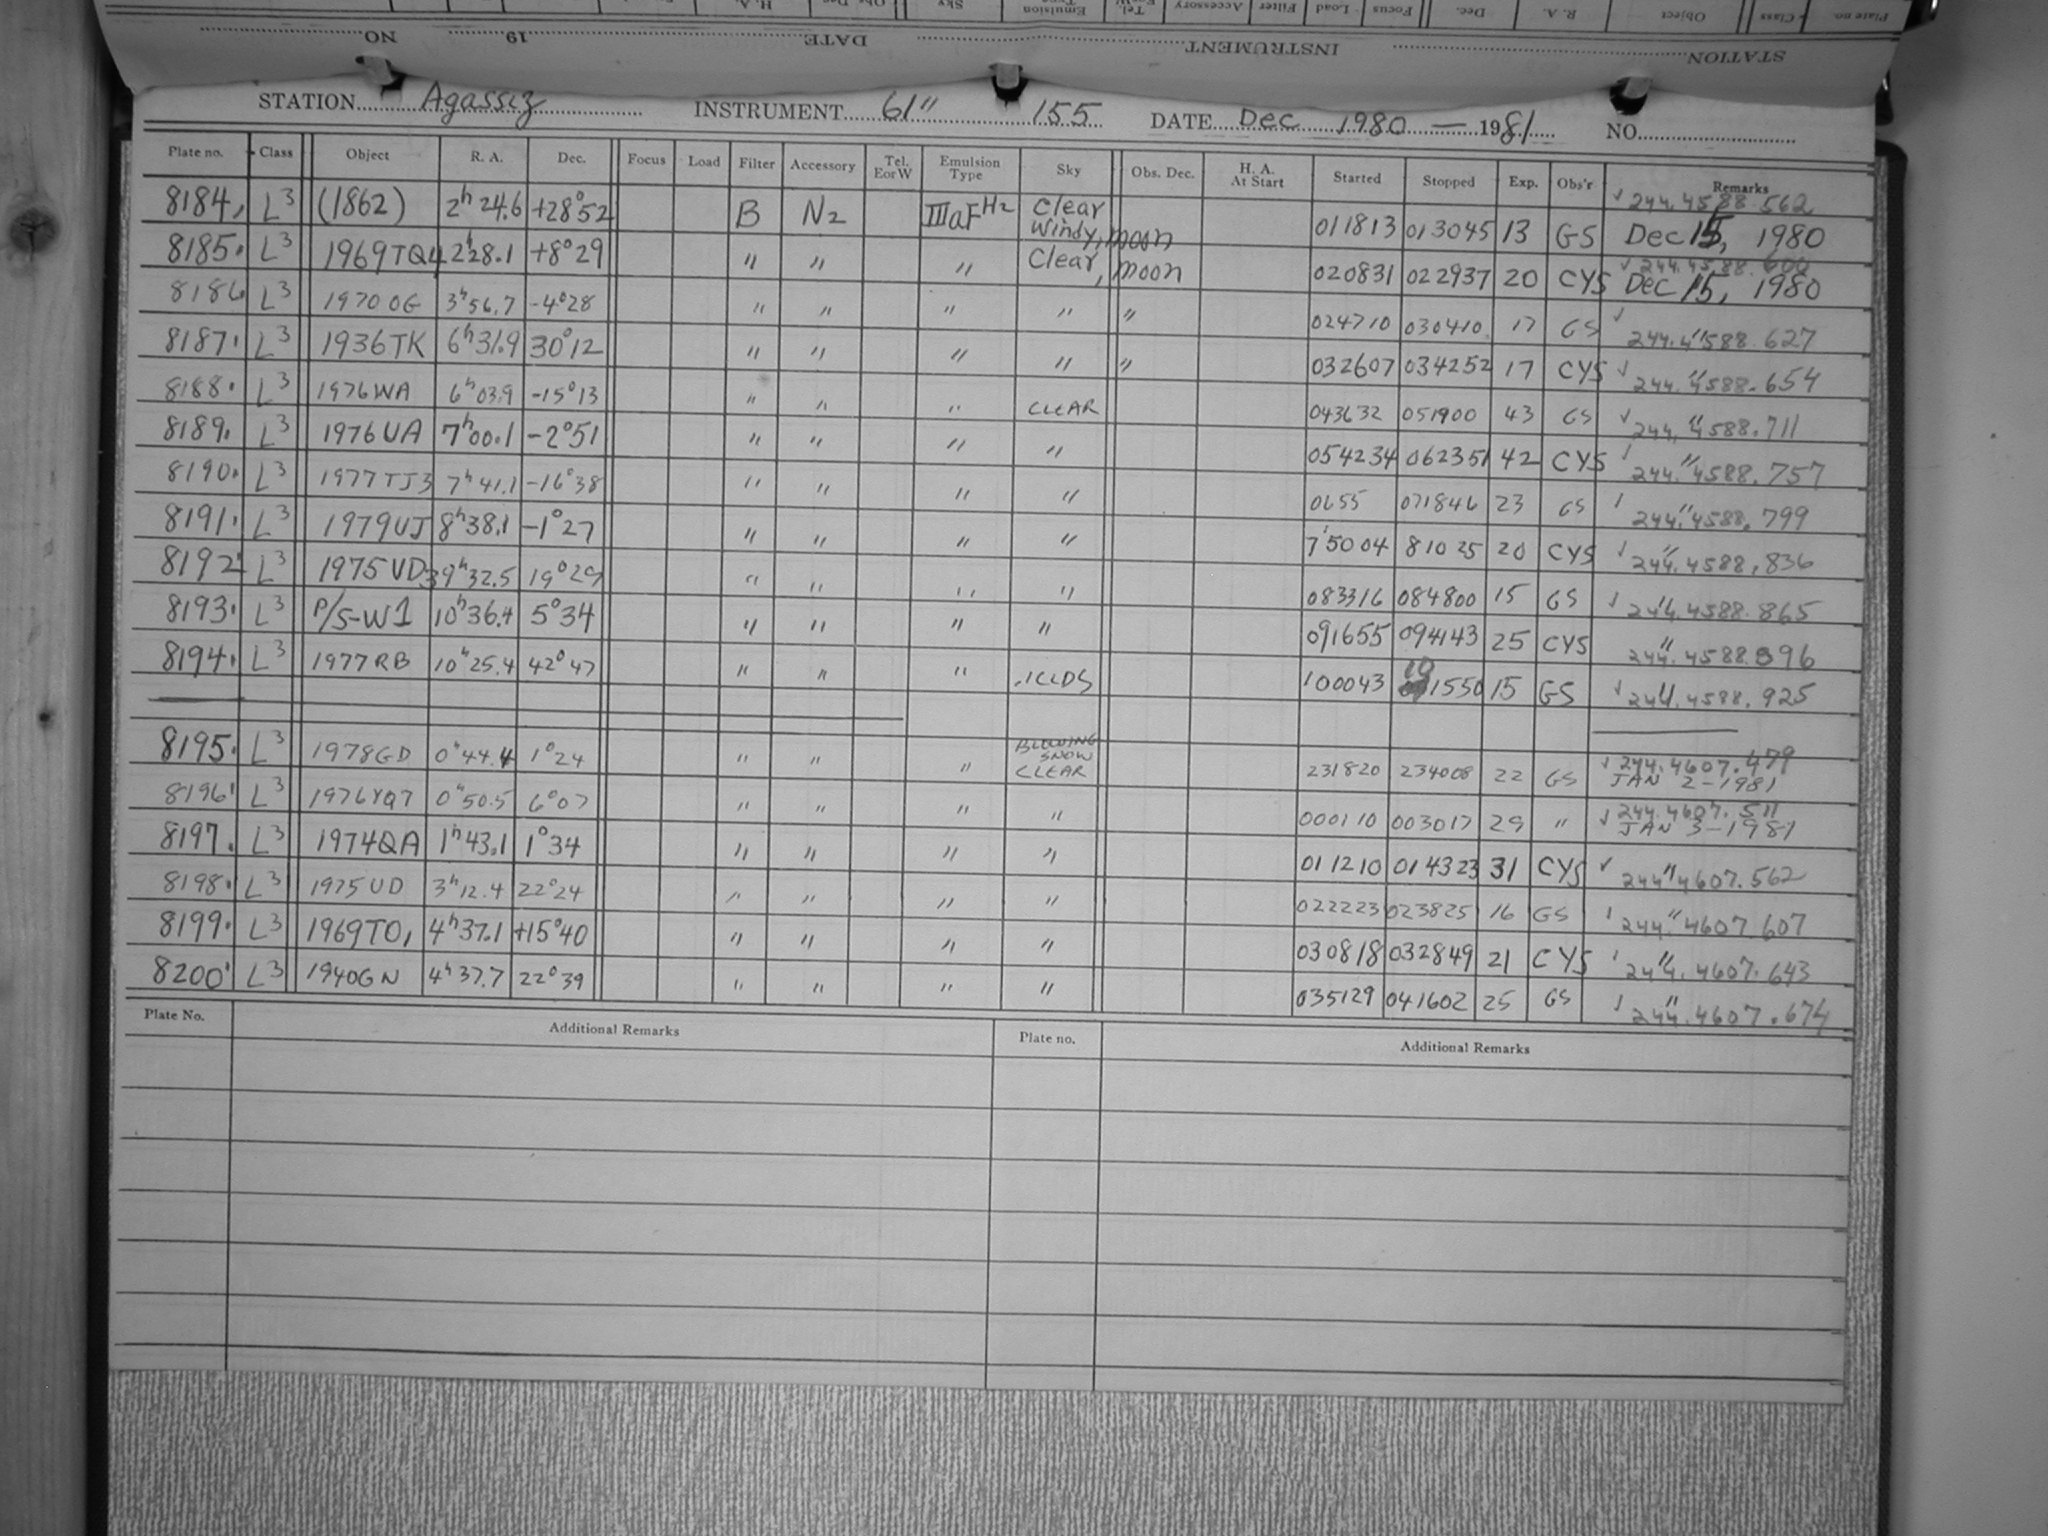 Plate no. Class Object R. A. Dec. Focus Load Filter Accessory Tel. E or W Emulsion Type Sky
STATION INSTRUMENT DATE 19 NO
STATION Agassiz INSTRUMENT 61" 155 DATE Dec 1980 — 1981 NO
Plate no. Class Object R. A. Dec. Focus Load Filter Accessory Tel. E or W Emulsion Type Sky Obs. Dec. H. A. At Start Started Stopped Exp. Obs'r Remarks
8184, L3 (1862) 2h 24.6 +28°52 B N2 IIIaF H2 Clear Windy, moon 011813 013045 13 GS ✓ 244.4588.562 Dec 15, 1980
8185. L3 1969TQ4 2h28.1 +8°29 " " " Clear, moon 020831 022937 20 CYS ✓ 244.4588.600 Dec 15, 1980
8186 L3 1970 OG 3h56.7 -4°28 " " " " " 024710 030410. 17 GS ✓ " 244.4588.627
8187. L3 1936TK 6h31.9 30°12 " " " " " 032607 034252 17 CYS ✓ " 244.4588.654
8188. L3 1976WA 6h03.9 -15°13 " " " CLEAR 043632 051900 43 GS ✓ " 244.4588.711
8189. L3 1976UA 7h00.1 -2°51 " " " " 054234 062351 42 CYS ✓ " 244.4588.757
8190. L3 1977TJ3 7h41.1 -16°38 " " " " 0655 071846 23 GS ✓ " 244.4588.799
8191. L3 1979UJ 8h38.1 -1°27 " " " " 75004 81025 20 CYS ✓ " 244.4588.836
8192 L3 1975VD3 9h32.5 19°29 " " " " 083316 084800 15 GS ✓ " 244.4588.865
8193. L3 P/S-W1 10h36.4 5°34 " " " " 091655 094143 25 CYS " 244.4588.896
8194. L3 1977RB 10h25.4 42°47 " " " .1CLDS 100043 101550 15 GS ✓ 244.4588.925
8195. L3 1978GD 0h44.4 1°24 " " " BLOWING SNOW CLEAR 231820 234008 22 GS ✓ 244.4607.479 JAN 2-1981
8196 L3 1976YQ7 0h50.5 6°07 " " " " 000110 003017 29 " ✓ 244.4607.511 JAN 3-1981
8197. L3 1974QA 1h43.1 1°34 " " " " 011210 014323 31 CYS ✓ " 244.4607.562
8198. L3 1975UD 3h12.4 22°24 " " " " 022223 023825 16 GS ✓ " 244.4607.607
8199. L3 1969TO1 4h37.1 +15°40 " " " " 030818 032849 21 CYS ✓ " 244.4607.643
8200 L3 1940GN 4h37.7 22°39 " " " " 035129 041602 25 GS ✓ " 244.4607.674
Plate No. Additional Remarks Plate no. Additional Remarks